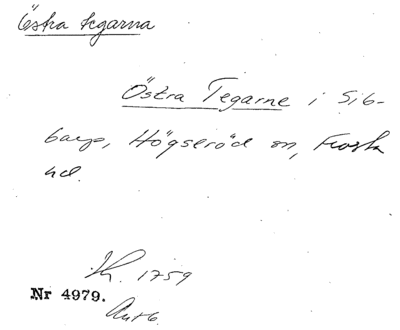 Östra tegarna
Östra Tegarne i Sib-
barp, Högseröd sn, Frosta
hd.
1759
Nr 4979.